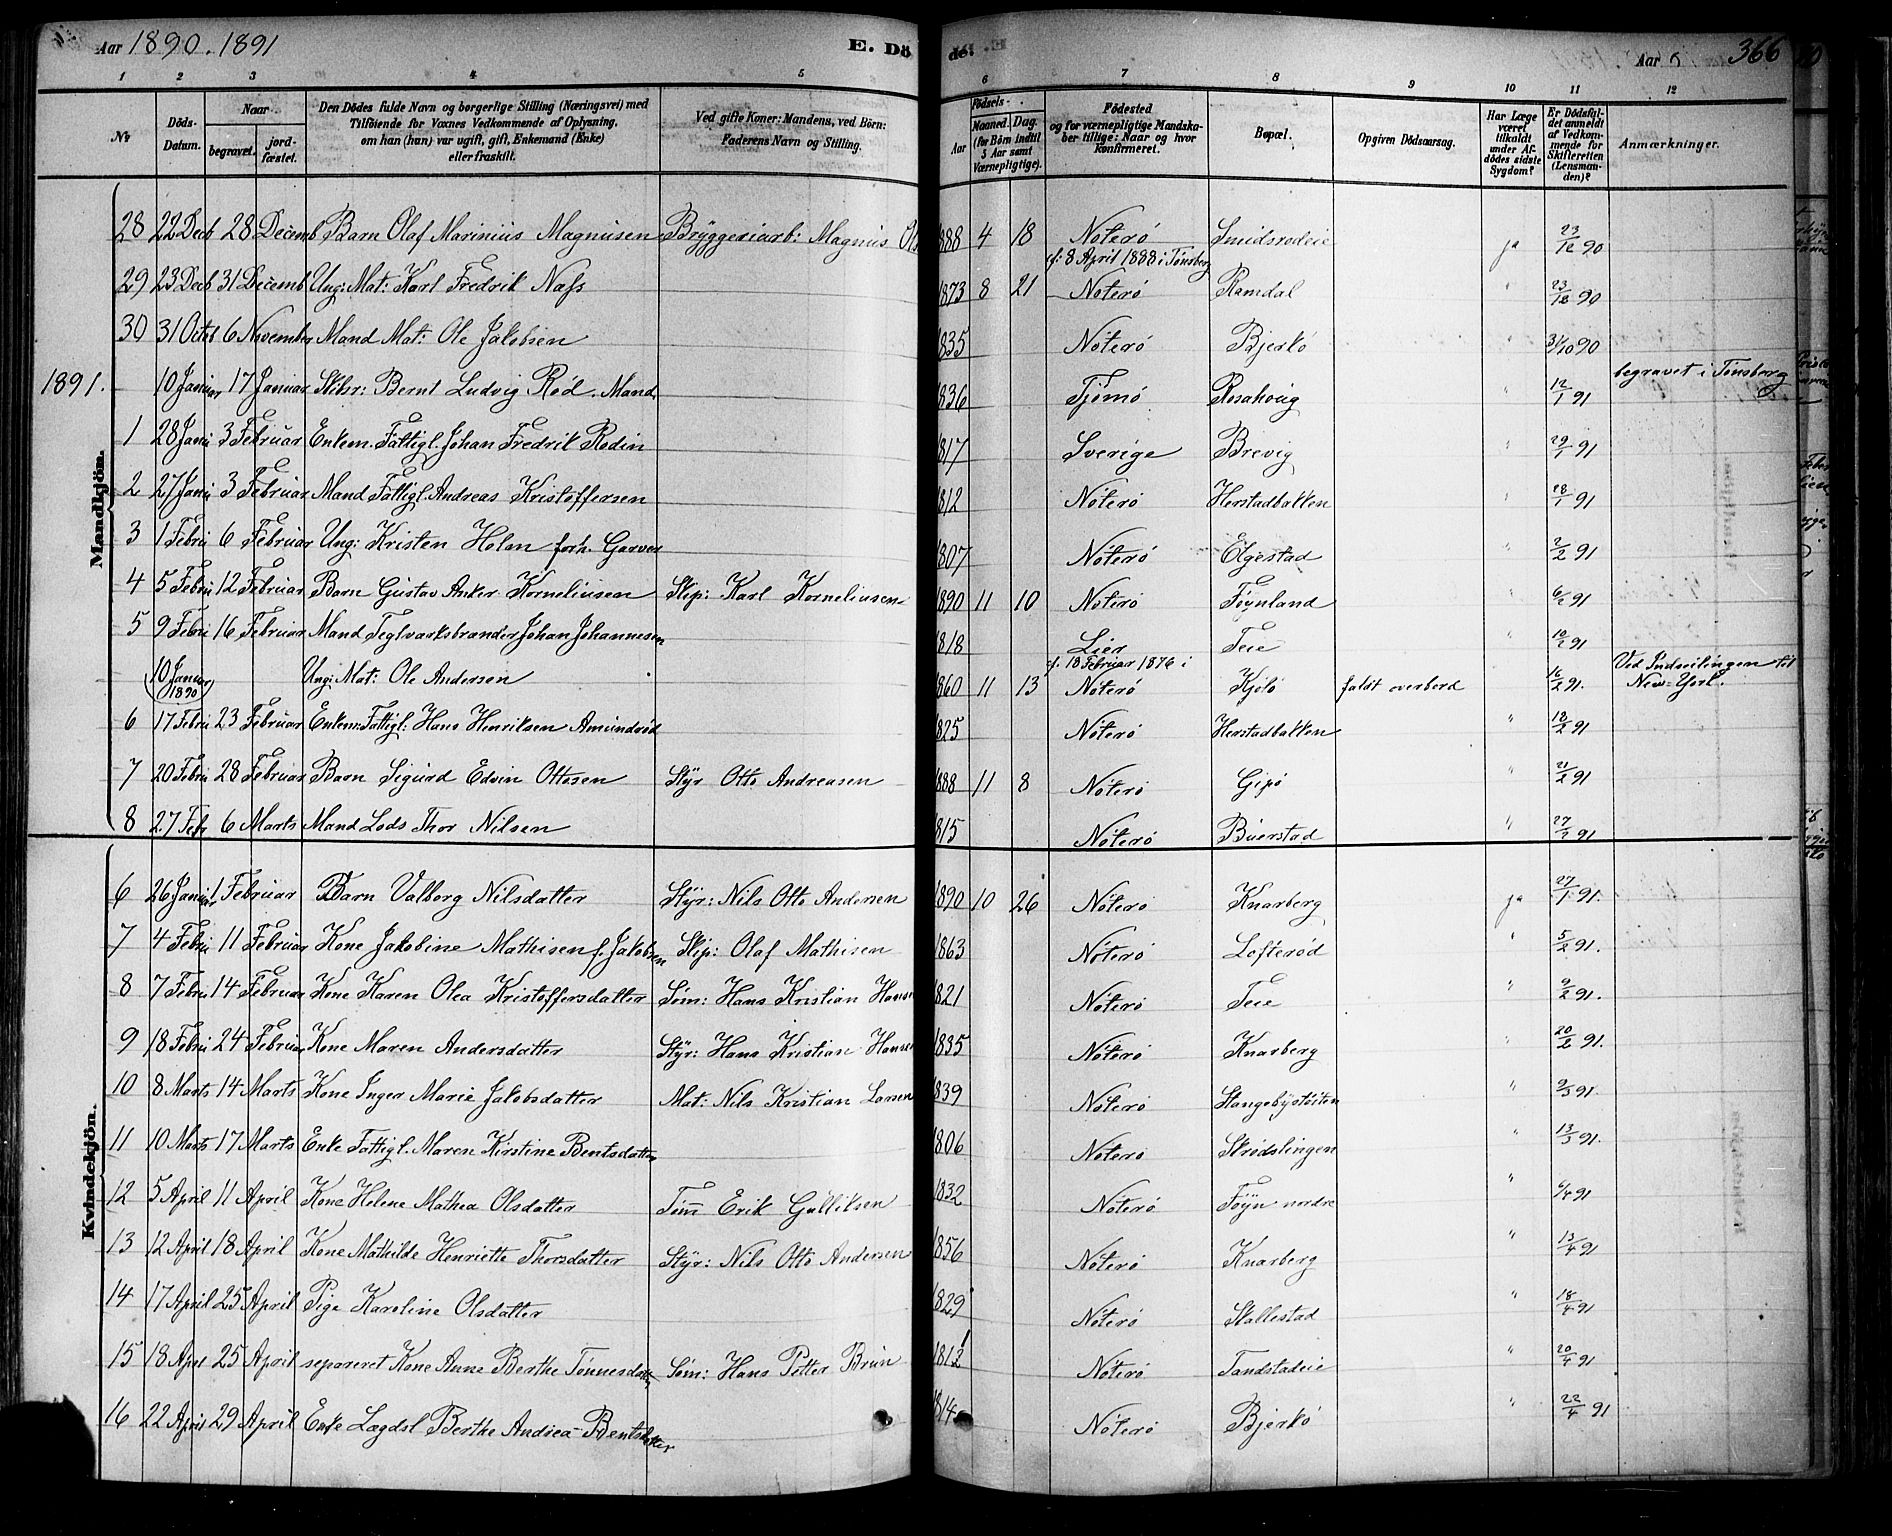 Aar 1890. 1891
E. Dö
de.
Aar
366
1 2 3 4 5 6 7 8 9 10 11 12
№
Döds-Datum.
Naar
begravet.
jord-fæstet.
Den Dödes fulde Navn og borgerlige Stilling (Næringsvei) med
Tilföiende for Voxnes Vedkommende af Oplysning,
om han (hun) var ugift, gift, Enkemand (Enke)
eller fraskilt.
Ved gifte Koner: Mandens, ved Börn:
Faderens Navn og Stilling.
Födsels-
Aar
Maaned. Dag.
(for Børn indtil
5 Aar samt
Værnepligtige).
Födested
og for værnepligtige Mandska-
ber tillige: Naar og hvor
konfirmeret.
Bopæl.
Opgiven Dödsaarsag.
Har Læge
været
tilkaldt
under Af-
dödes sidste
Sygdom?
Er Dödsfal-
det anmeldt
af Vedkom-
mende for
Skifteretten
(Lensman-
den)?
Anmærkninger.
28 22 Decb 28 Decemb Barn Olaf Marinius Magnusen Bryggeriarb: Magnus 1888 4 18 Nøterø Smidsrødeie ja 23/12 90
29 23 Decb 31 Decemb Ung: Mat: Karl Fredrik Næss 1873 8 21 cf: 8 April 1888 i Tønsberg Nøterø Ramdal " 23/12 90
30 31 Octob 6 November Mand Mat: Ole Jakobsen 1835 Nøterø Bjerkø " 31/10 90
1891. 10 Januar 17 Januar Skibsr: Bernt Ludvig Rød. Mand 1836 Tjømø Rosahoug " 12/1 91 begravet i Tønsberg
Mandkjön.
1 28 Janu 3 Februar Enkem. Fattigl. Johan Fredrik Rodin 1817 Sverige Brevig " 29/1 91
2 27 Janu 3 Februar Mand Fattigl. Andreas Kristoffersen 1812 Nøterø Herstadbakken " 28/1 91
3 1 Febru 6 Februar Ung: Kristen Holm forh. Garver 1807 Nøterø Elgestad " 2/2 91
4 5 Febru 12 Februar Barn Gustav Anker Korneliusen Skip: Karl Korneliusen 1890 11 10 Nøterø Føynland " 6/2 91
5 9 Febru 16 Februar Mand Teglværksbrænder Johan Johannesen 1818 Lier Teie " 10/2 91
10 Januar (1890) Ung: Mat: Ole Andersen 1860 11 13 cf. 13 Februar 1876 i Nøterø Kjøle faldt overbord 16/2 91. Ved Indseilingen til New-York.
6 17 Febru 23 Februar Enkem: Fattigl: Hans Henriksen Amundrød 1825 Nøterø Herstadbakken " 18/2 91
7 20 Febru 28 Februar Barn Sigurd Edvin Ottosen Styr Otto Andreasen 1888 11 8 Nøterø Gipø " 21/2 91
8 27 Febr 6 Marts Mand Lods Thor Nilsen 1815 Nøterø Buerstad " 27/2 91
Kvindekjön.
6 26 Januar 1 Februar Barn Valborg Nilsdatter Styr: Nils Otto Andersen 1890 10 26 Nøterø Knarberg ja 27/1 91.
7 4 Febru 11 Februar Kone Jakobine Mathisen f. Jakobsen Skip: Olaf Mathisen 1863 Nøterø Lofterød " 5/2 91.
8 7 Febru 14 Februar Kone Karen Olea Kristoffersdatter Søm: Hans Kristian Hansen 1821 Nøterø Teie " 9/2 91.
9 18 Febru 24 Februar Kone Maren Andersdatter Styr: Hans Kristian Hansen 1835 Nøterø Knarberg " 20/2 91.
10 8 Marts 14 Marts Kone Inger Marie Jakobsdatter Mat: Nils Kristian Larsen 1839 Nøterø Stangebystøiten " 9/3 91.
11 10 Marts 17 Marts Enke Fattigl. Maren Kirstine Bentsdatter 1806 Nøterø Skrødslingen " 13/3 91.
12 5 April 11 April Kone Helene Mathea Olsdatter Tøm Erik Gulliksen 1832 Nøterø Føyn nordre " 6/4 91
13 12 April 18 April Kone Mathilde Henriette Thorsdatter Styr: Nils Otto Andersen 1856 Nøterø Knarberg " 13/4 91
14 17 April 25 April Pige Karoline Olsdatter 1829 Nøterø Skallestad " 18/4 91
15 18 Apri 25 April separeret Kone Anne Berthe Tønnesdatter Søm: Hans Petter Brun 1812 Nøterø Tandstadeie " 20/4 91
16 22 April 29 April Enke Lægdsl Berthe Andrea Bentsdatter 1814 Nøterø Bjerkø " 22/4 91